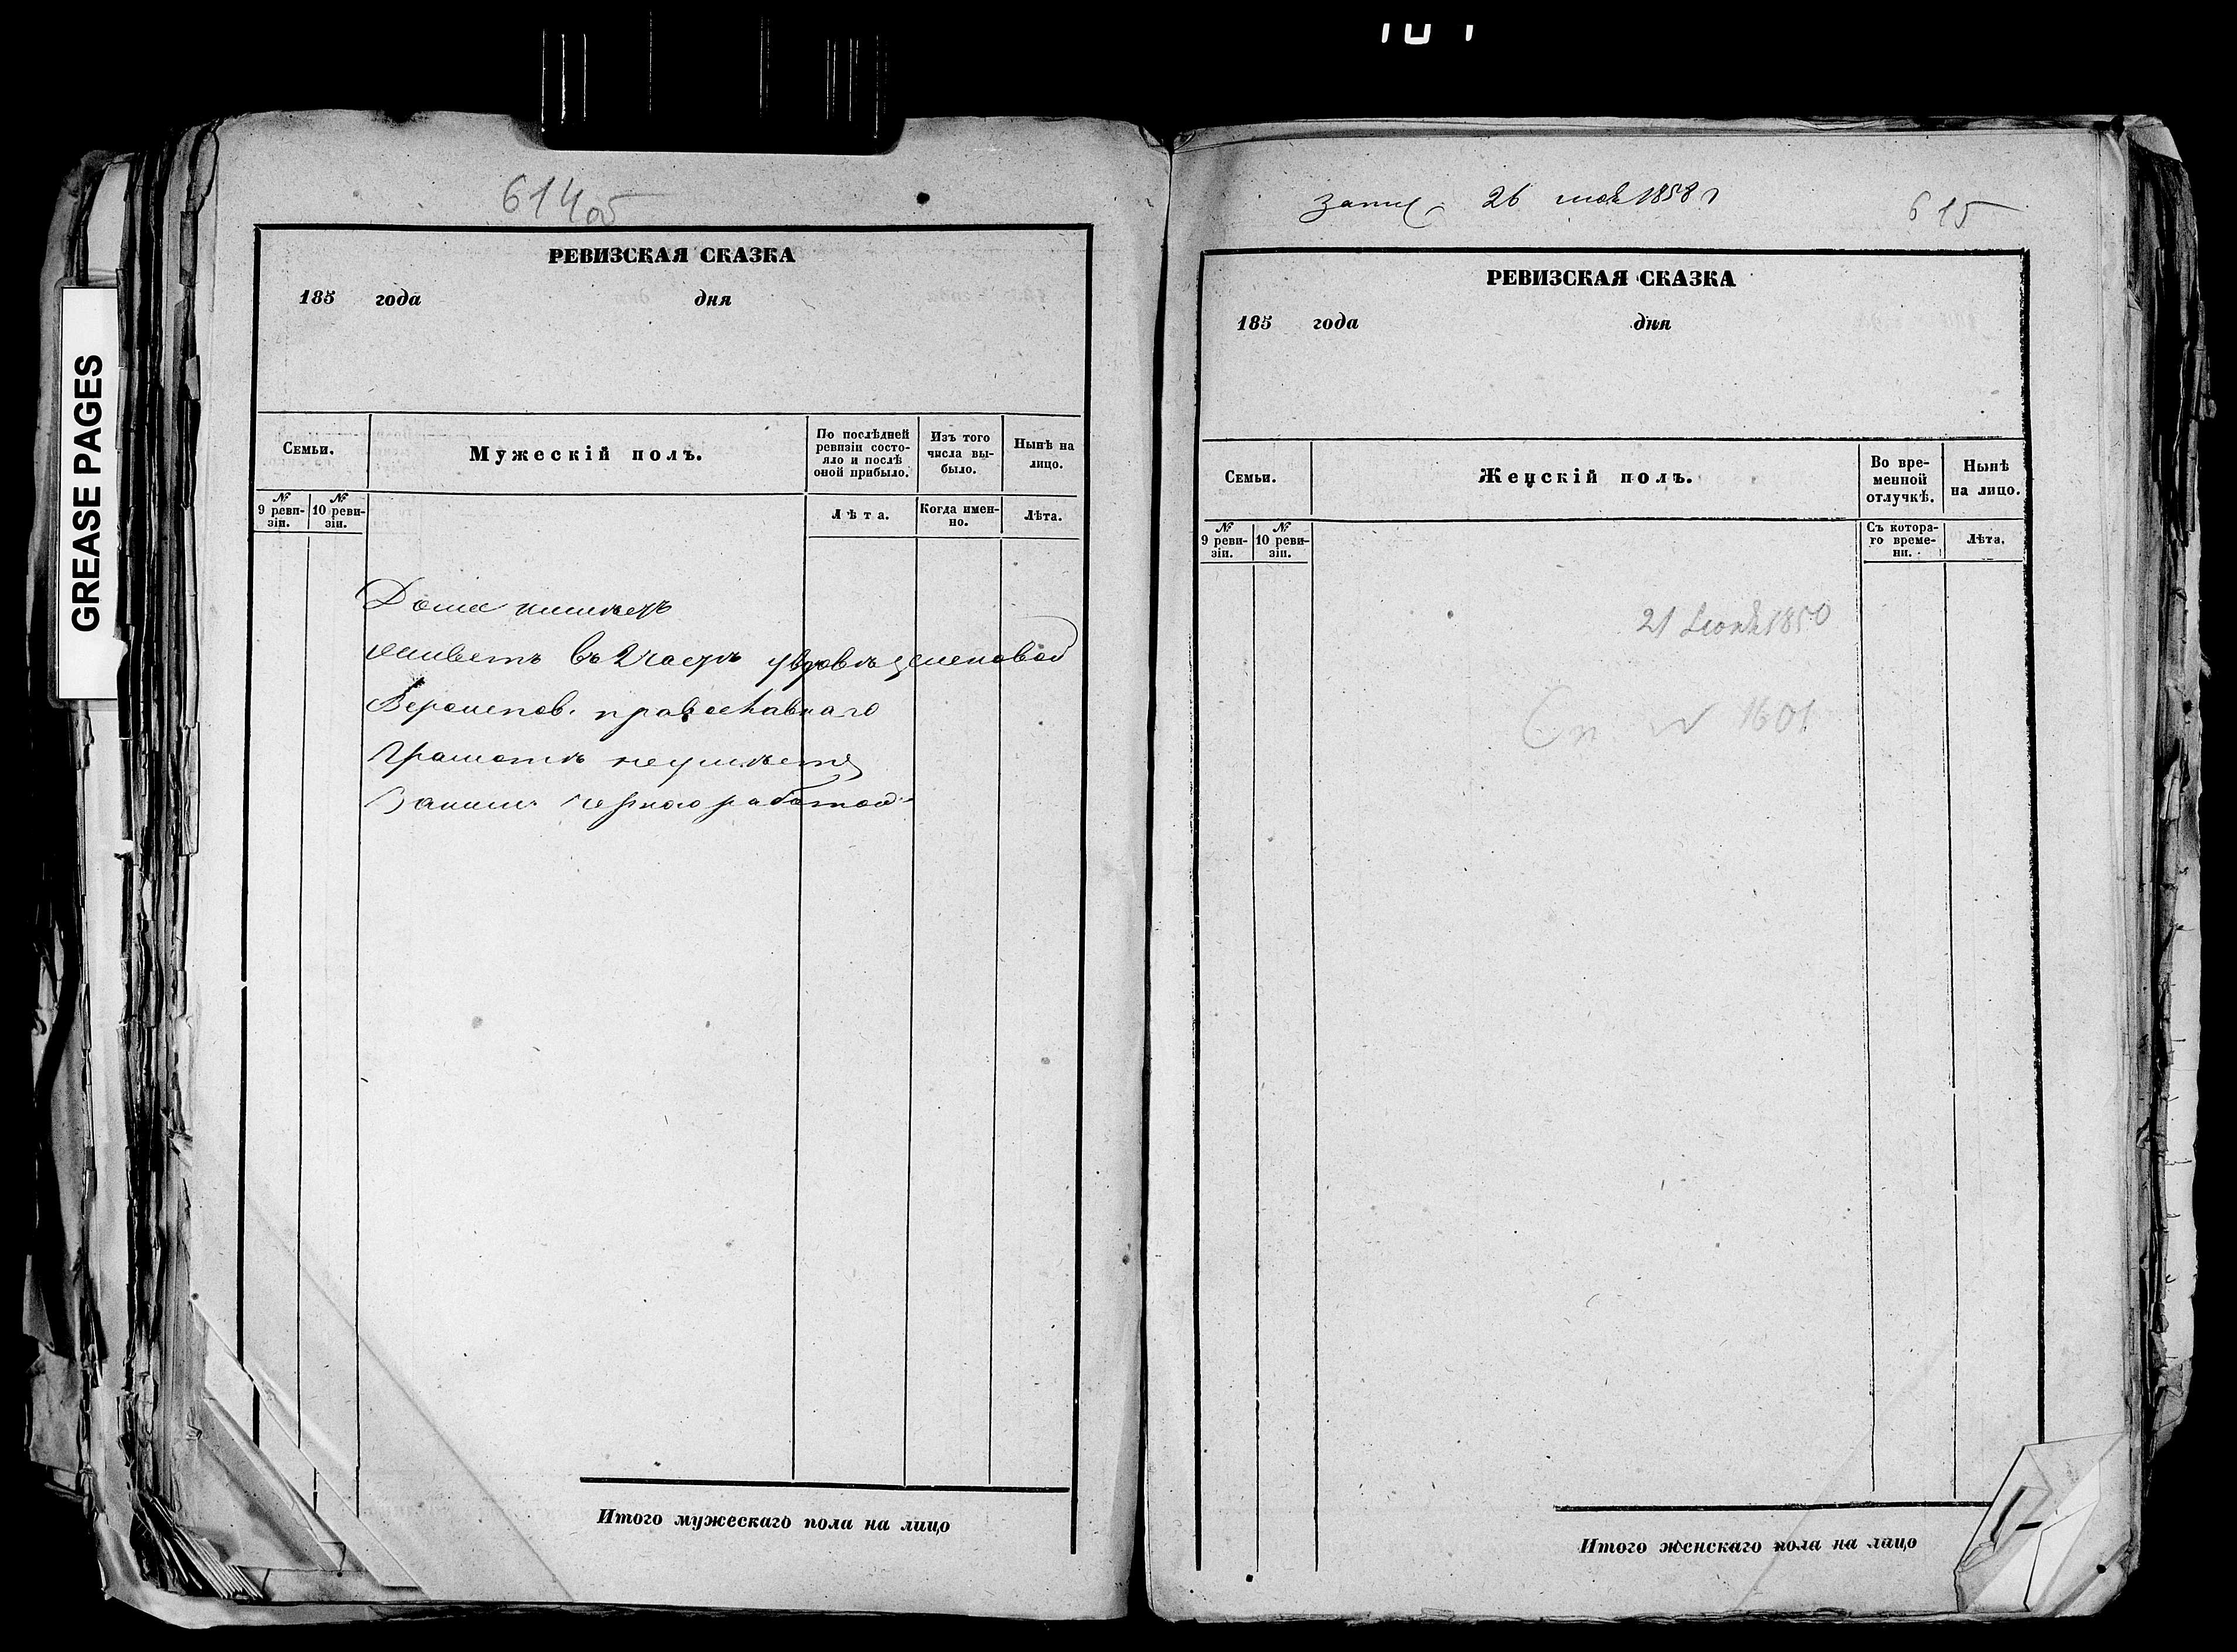 GREASE PAGES
614 об
РЕВИЗСКАЯ СКАЗКА
185 года дня
Семьи.
Мужескій полъ.
По послѣдней ревизіи состояло и послѣ оной прибыло.
Изъ того числа выбыло.
Нынѣ на лицо.
№ 9 ревизіи.
№ 10 ревизіи.
Лѣта.
Когда именно.
Лѣта.
Дома
живетъ въ 2 части
Вероиспов. православнаго
Грамотѣ неумѣетъ
Заним. черною работой
Итого мужескаго пола на лицо
26 1858 г
615
РЕВИЗСКАЯ СКАЗКА
185 года дня
Семьи.
Женскій полъ.
Во временной отлучкѣ.
Нынѣ на лицо.
№ 9 ревизіи.
№ 10 ревизіи.
Съ котораго времени.
Лѣта.
21 1850
№ 1601
Итого женскаго пола на лицо